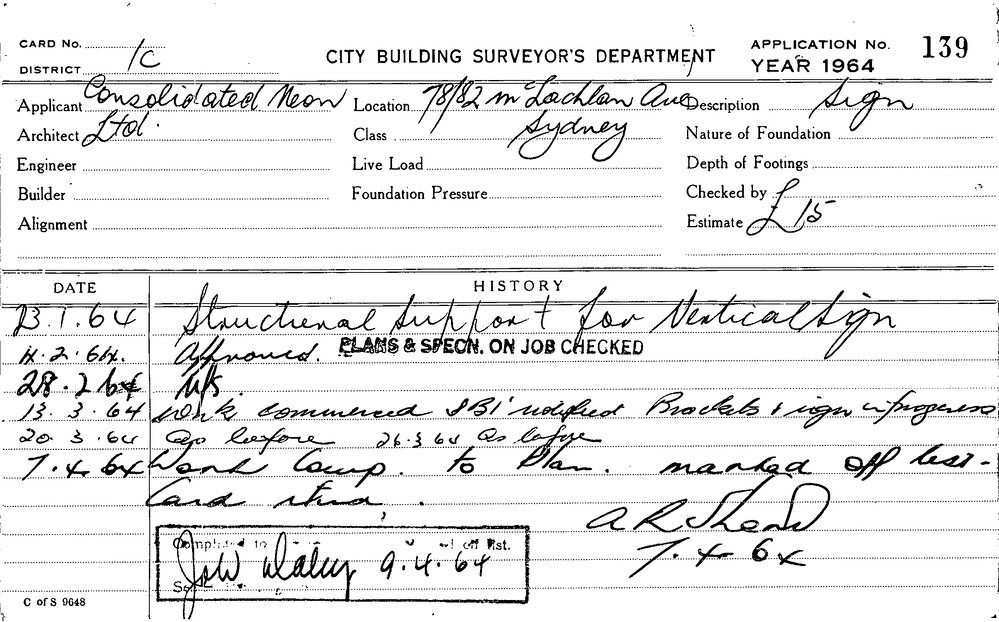 CARD No.
DISTRICT 1C
CITY BUILDING SURVEYOR'S DEPARTMENT
APPLICATION No. 139
YEAR 1964
Applicant Consolidated Neon Location 78/82 McLachlan Ave Description Sign
Architect Ltd. Class Sydney Nature of Foundation
Engineer Live Load Depth of Footings
Builder Foundation Pressure Checked by
Alignment Estimate £15
DATE HISTORY
23.1.64 Structural Support for Vertical Sign
4.2.64. Approved. PLANS & SPECN. ON JOB CHECKED
28.2.64 N/S.
13.3.64 Work commenced notified Brackets & sign in progress
20.3.64 As before 26.3.64 As before
7.4.64 Work Comp. to Plan. marked off list.
Card
7.4.64
Completed to off list.
9.4.64
C of S 9648